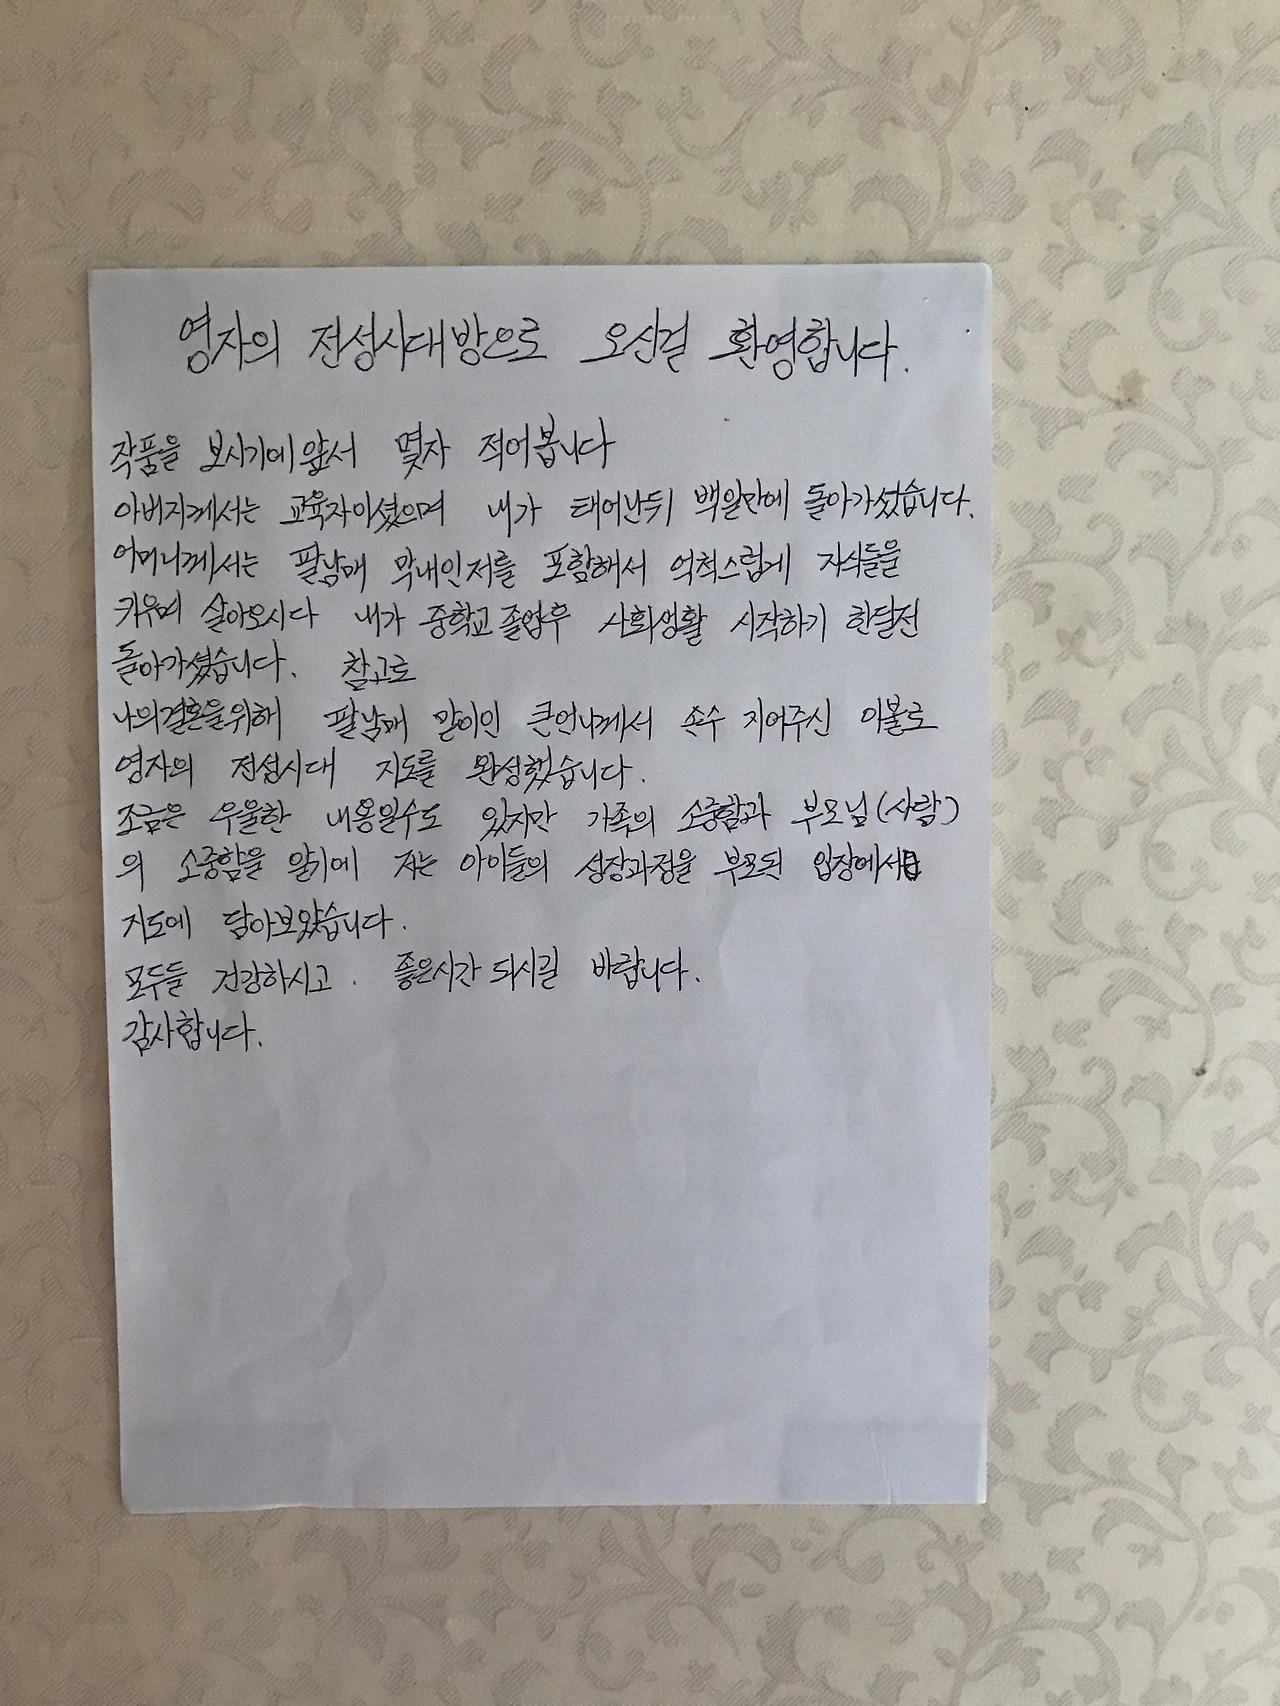 영자의 전성시대방으로 오신걸 환영합니다.
작품을 보시기에앞서 몇자 적어봅니다
아버지께서는 교육자이셨으며 내가 태어난뒤 백일만에 돌아가셨습니다.
어머니께서는 팔남매 막내인저를 포함해서 억척스럽게 자식들을
키우며 살아오시다 내가 중학교졸업후 사회생활 시작하기 한달전
돌아가셨습니다. 참고로
나의결혼을위해 팔남매 맏이인 큰언니께서 손수 지어주신 이불로
영자의 전성시대 지도를 완성했습니다.
조금은 우울한 내용일수도 있지만 가족의 소중함과 부모님(사람)
의 소중함을 알기에 저는 아이들의 성장과정을 부모된 입장에서
지도에 담아보았습니다.
모두들 건강하시고. 좋은시간되시길 바랍니다.
감사합니다.